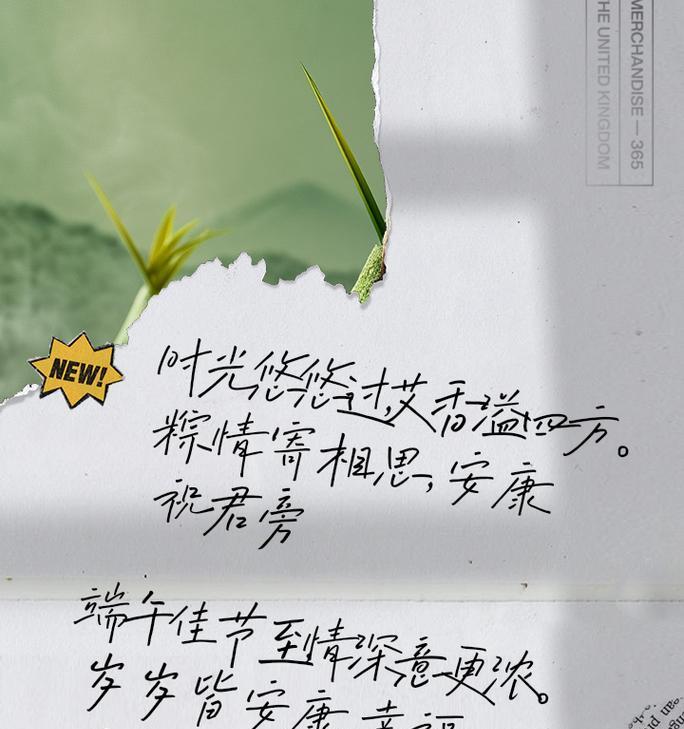 MERCHANDISE — 365
THE UNITED KINGDOM
NEW!
时光悠悠过，艾香溢四方。
粽情寄相思，安康
祝君旁
端午佳节至情深意更浓。
岁岁皆安康幸福